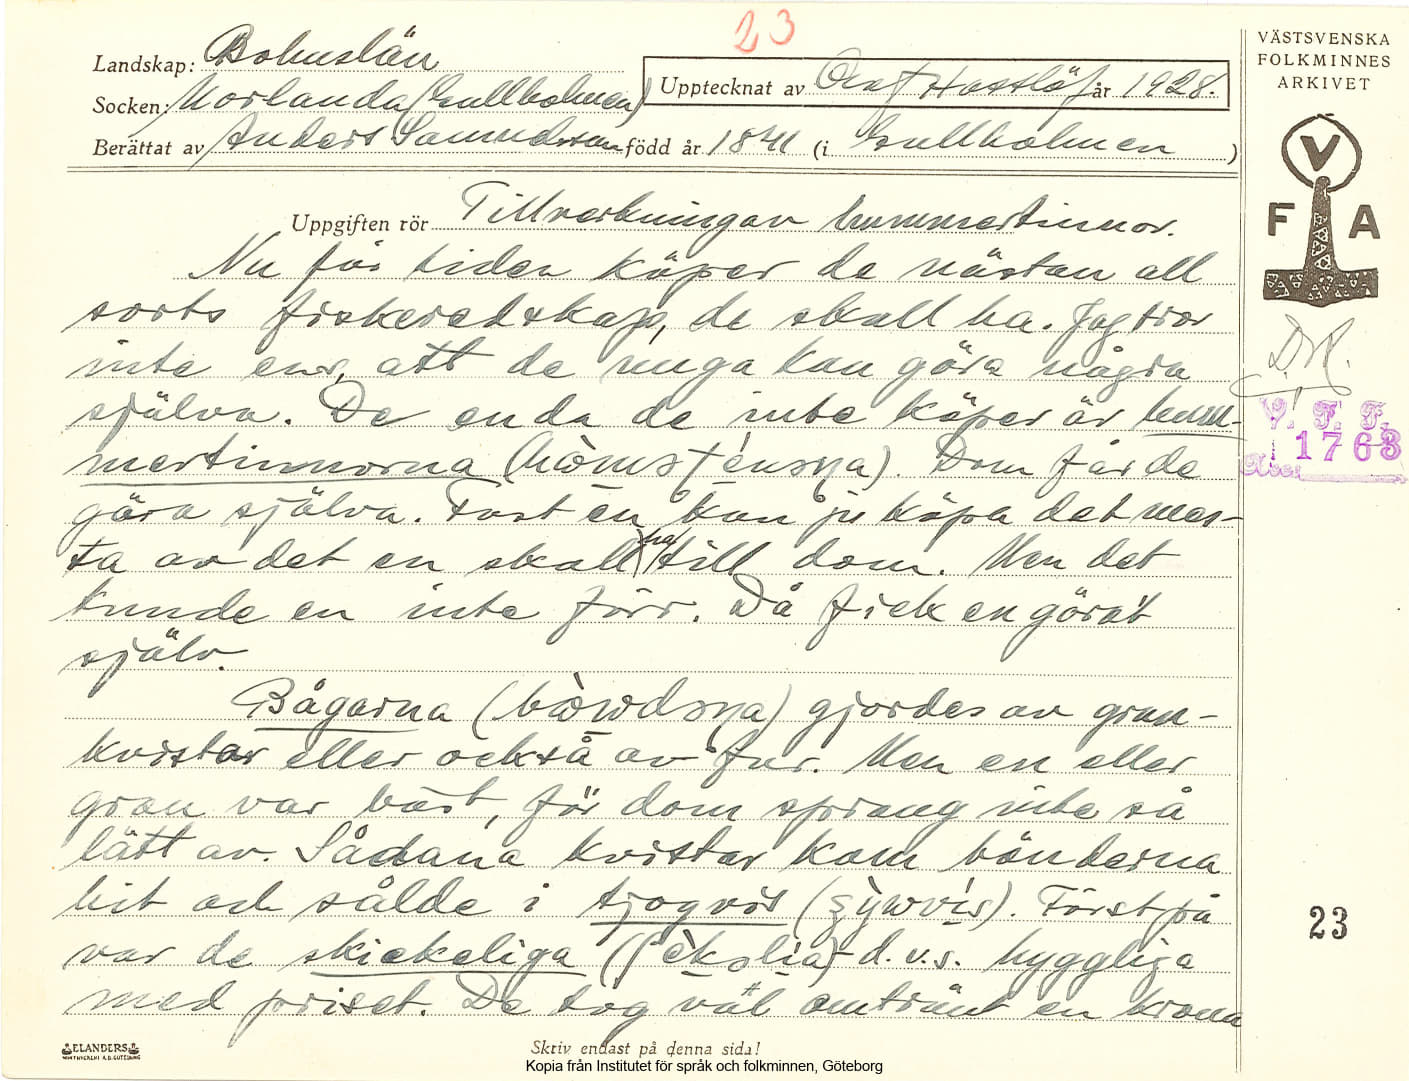 23
VÄSTSVENSKA
FOLKMINNES
ARKIVET
Landskap: Bohuslän
Upptecknat av Olof Hasslöf år 1928.
Socken: Morlanda (Gullholmen)
Berättat av Anders Samuelsson född år 1841 (i Gullholmen)
V
F A
Uppgiften rör Tillverkning av hummertinnor.
Nu för tiden köper de nästan all
sorts fiskeredskap, de skall ha. Jag tror
inte ens, att de unga kan göra några
själva. De enda de inte köper är hum-
mertinnorna (). Dom får de
göra själva. Fast en kan ju köpa det mes-
ta av det en skall ha till dom. Men det
kunde en inte förr. Då fick en göra't
själv.
V. F. F.
1763
Acc.
Bågarna () gjordes av gran-
kvistar eller också av fur. Men en eller
gran var bäst, för dom sprang inte så
lätt av. Sådana kvistar kom bönderna
hit och sålde i tjogvis (). Först på
var de skickeliga () d.v.s. hyggliga
med priset. De tog väl omtränt en krona
23
ELANDERS
Skriv endast på denna sida!
Kopia från Institutet för språk och folkminnen, Göteborg